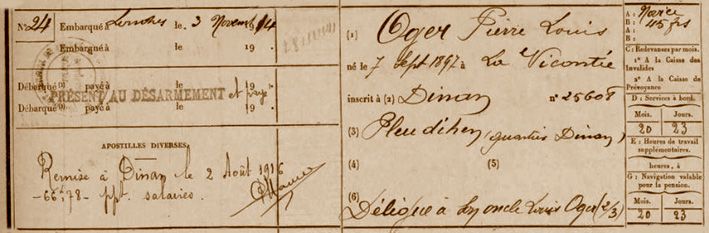 N° 24 Embarqué à Londres le 3 Novembre 19 14
Embarqué à le 19
Débarqué payé à le 19
PRÉSENT AU DÉSARMEMENT et payé
Débarqué payé à le 19
APOSTILLES DIVERSES.
Remise à Dinan le 2 Août 1916
-66,78- ppt. salaires.
(1) Oger Pierre Louis
né le 7 Sept 1897 à La Vicomté
inscrit à (2) Dinan n° 25608
(3) Pleudihen (quartier Dinan)
(4) (5)
(6)
Délégue à son oncle Louis Oger (2/3)
A: Novice
B:
A: 45 frs
B:
C: Redevances par mois.
1° A la Caisse des
Invalides
2° A la Caisse de
Prévoyance
D: Services à bord.
Mois. Jours.
20 23
E: Heures de travail
supplémentaires.
heures, à
G: Navigation valable
pour la pension.
Mois. Jours.
20 23